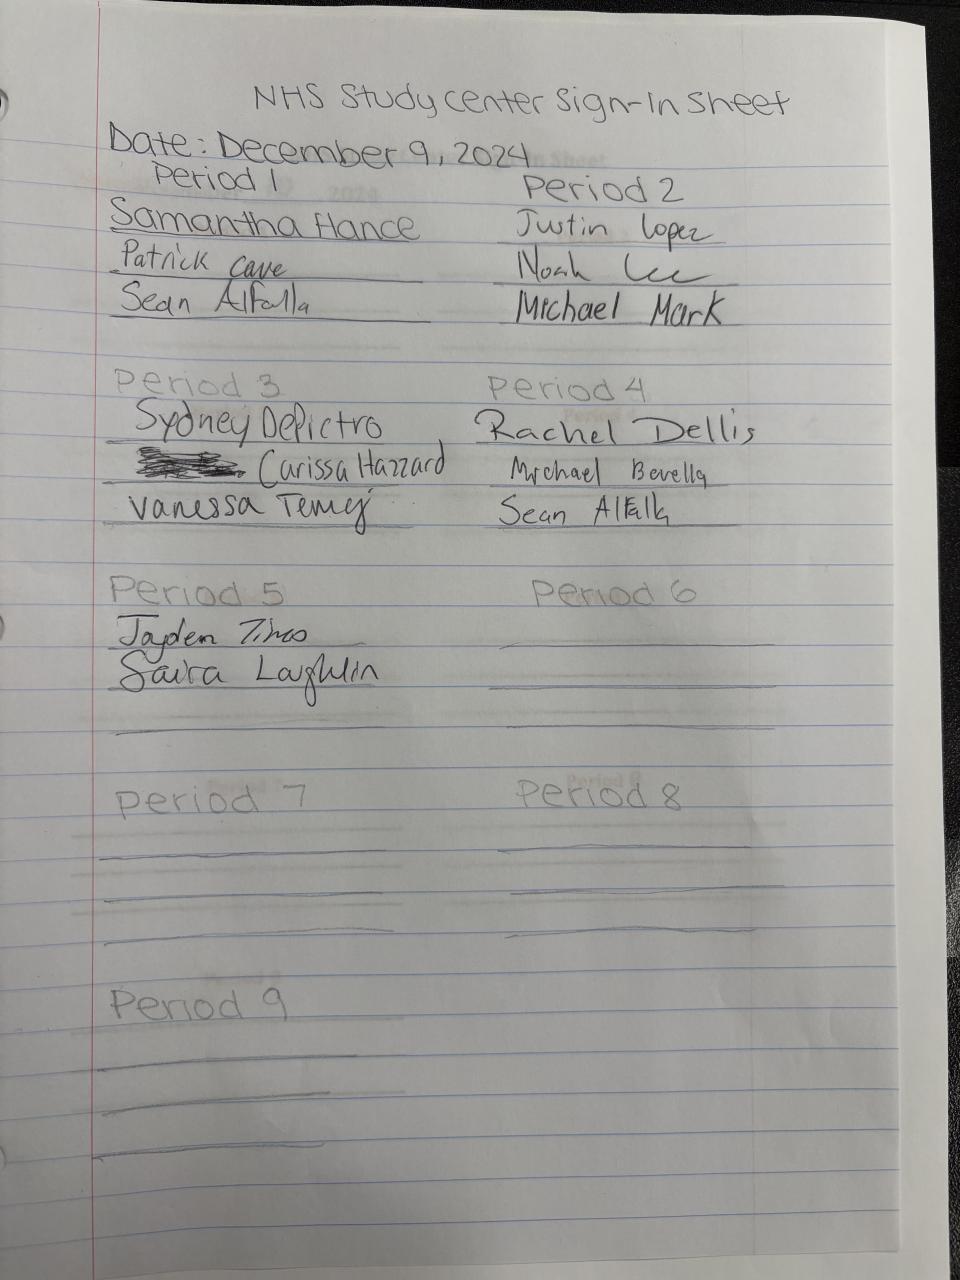 NHS Study center Sign-In Sheet
Date: December 9, 2024
Period 1
Samantha Hance
Patrick Cave
Sean Alfalla
Period 2
Justin Lopez
Noah Lee
Michael Mark
Period 3
Sydney DePietro
Carissa Hazzard
Vanessa
Period 4
Rachel Dellis
Michael Bevella
Sean Alfalla
Period 5
Jayden
Saira Laughlin
Period 6
Period 7
Period 8
Period 9